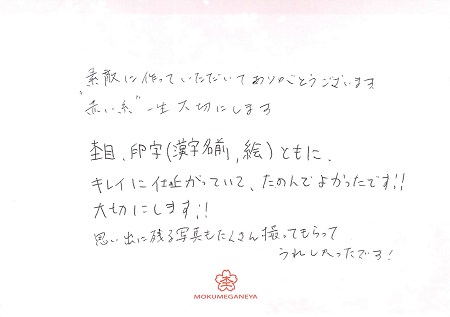 素敵に作っていただいてありがとうございます
"赤い糸" 一生大切にします
杢目、印字(漢字名前、絵)ともに、
キレイに仕上がっていて、たのんでよかったです!!
大切にします!!
思い出に残る写真もたくさん撮ってもらって
うれしかったです!
杢
MOKUMEGANEYA